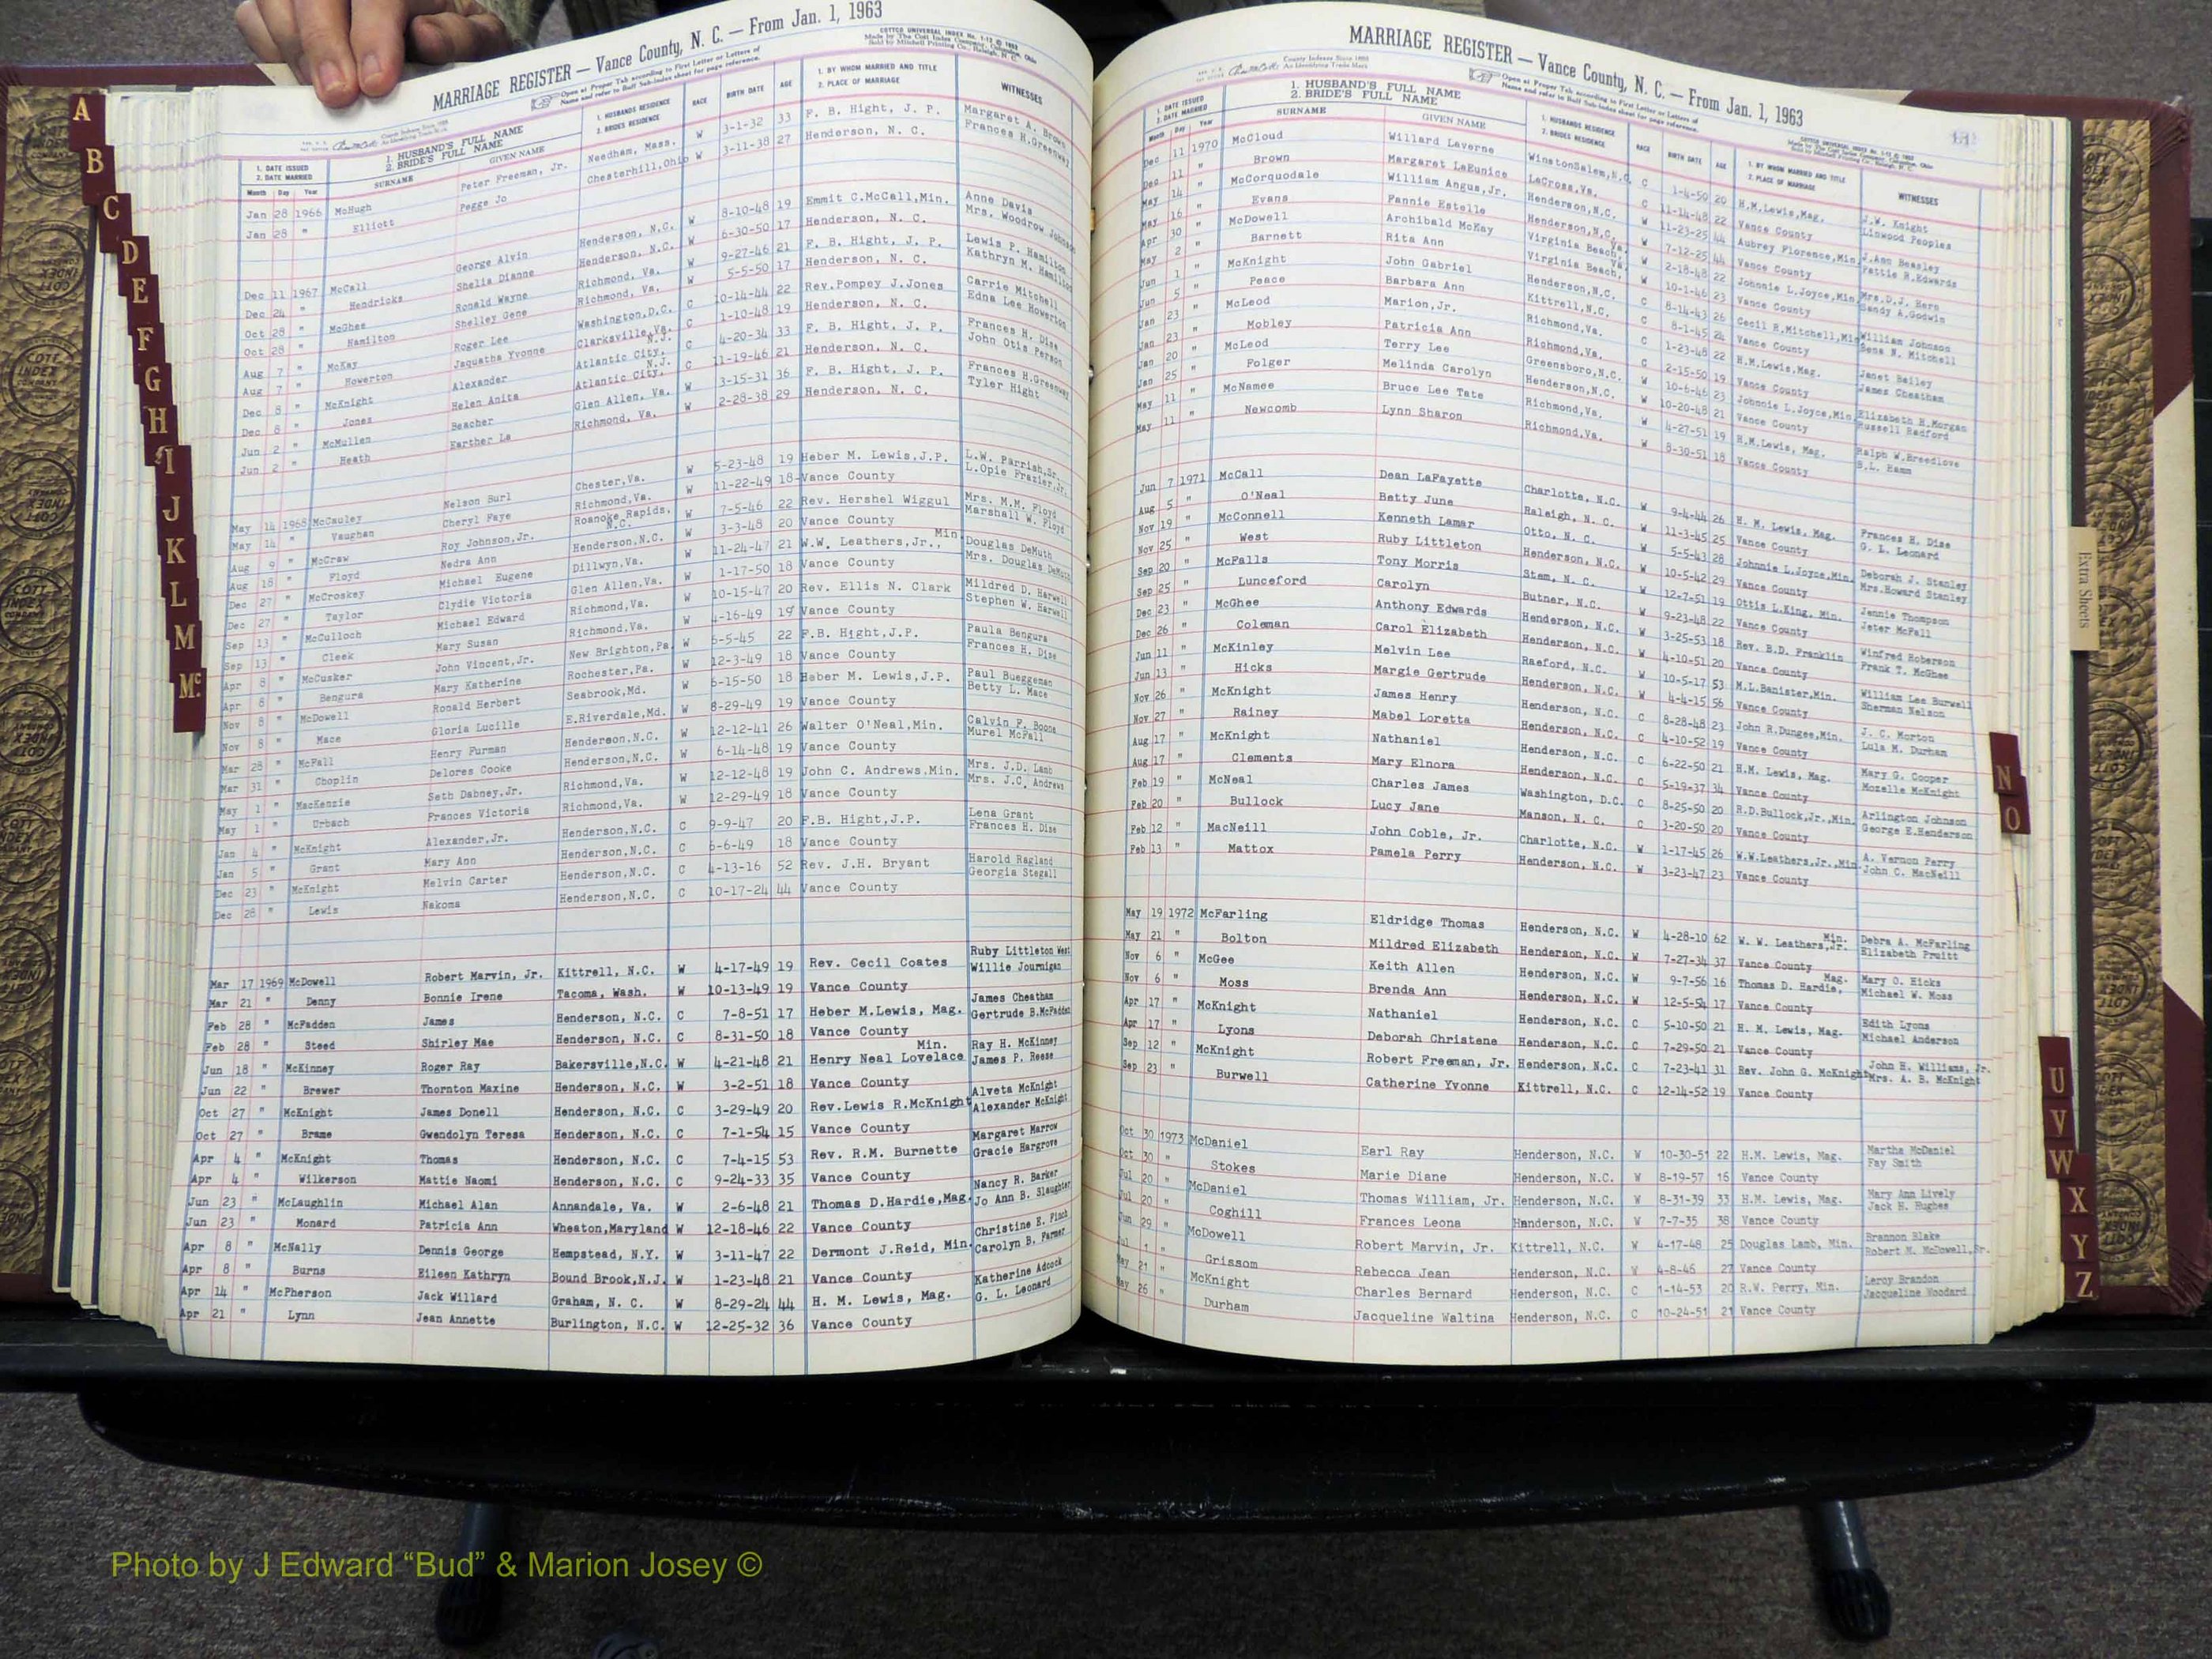 MARRIAGE REGISTER — Vance County, N. C. — From Jan. 1, 1963
COTTCO UNIVERSAL INDEX No. 1-12 © 1963
Made by The Cott Index Company, Columbus, Ohio
Sold by Mitchell Printing Co., Raleigh, N. C.
Open at Proper Tab according to First Letter or Letters of
Name and refer to Buff Sub-index sheet for page reference.
1. DATE ISSUED
2. DATE MARRIED
Month Day Year
1. HUSBAND'S FULL NAME
2. BRIDE'S FULL NAME
SURNAME GIVEN NAME
1. HUSBANDS RESIDENCE
2. BRIDES RESIDENCE
RACE BIRTH DATE AGE
1. BY WHOM MARRIED AND TITLE
2. PLACE OF MARRIAGE
WITNESSES
Jan 28 1966 McHugh Peter Freeman, Jr. Needham, Mass. W 3-1-32 33 F. B. Hight, J. P. Margaret A. Brown
Jan 28 " Elliott Pegge Jo Chesterhill,Ohio W 3-11-38 27 Henderson, N. C. Frances H.Greenway
Dec 11 1967 McCall George Alvin Henderson, N.C. W 8-10-48 19 Emmit C.McCall,Min. Anne Davis
Dec 24 " Hendricks Shelia Dianne Henderson, N.C. W 6-30-50 17 Henderson, N. C. Mrs. Woodrow Johnson
Oct 28 " McGhee Ronald Wayne Richmond, Va. W 9-27-46 21 F. B. Hight, J. P. Lewis P. Hamilton
Oct 28 " Hamilton Shelley Gene Richmond, Va. W 5-5-50 17 Henderson, N. C. Kathryn M. Hamilton
Aug 7 " McKay Roger Lee Washington,D.C. C 10-14-44 22 Rev.Pompey J.Jones Carrie Mitchell
Aug 7 " Howerton Jaquatha Yvonne Clarksville,Va. C 1-10-48 19 Henderson, N. C. Edna Lee Howerton
Dec 8 " McKnight Alexander Atlantic City, N.J. C 4-20-34 33 F. B. Hight, J. P. Frances H. Dise
Dec 8 " Jones Helen Anita Atlantic City, N.J. C 11-19-46 21 Henderson, N. C. John Otis Person
Jun 2 " McMullen Beacher Glen Allen, Va. W 3-15-31 36 F. B. Hight, J. P. Frances H.Greenway
Jun 2 " Heath Earther La Richmond, Va. W 2-28-38 29 Henderson, N. C. Tyler Hight
May 14 1968 McCauley Nelson Surl Chester,Va. W 5-23-48 19 Heber M. Lewis,J.P. L.W. Parrish,Sr.
May 14 " Vaughan Cheryl Faye Richmond,Va. W 11-22-49 18 Vance County L.Opie Frazier,Jr.
Aug 9 " McCraw Roy Johnson,Jr. Roanoke Rapids, N.C. W 7-5-46 22 Rev. Hershel Wiggul Mrs. M.M. Floyd
Aug 18 " Floyd Nedra Ann Henderson,N.C. W 3-3-48 20 Vance County Marshall W. Floyd
Dec 27 " McCroskey Michael Eugene Dillwyn,Va. W 11-24-47 21 W.W. Leathers,Jr., Min. Douglas DeMuth
Dec 27 " Taylor Clydie Victoria Glen Allen,Va. W 1-17-50 18 Vance County Mrs. Douglas DeMuth
Sep 13 " McCulloch Michael Edward Richmond,Va. W 10-15-47 20 Rev. Ellis N. Clark Mildred D. Harwell
Sep 13 " Cleek Mary Susan Richmond,Va. W 4-16-49 19 Vance County Stephen W. Harwell
Apr 8 " McCusker John Vincent,Jr. New Brighton,Pa. W 6-5-45 22 F.B. Hight,J.P. Paula Bengura
Apr 8 " Bengura Mary Katherine Rochester,Pa. W 12-3-49 18 Vance County Frances H. Dise
Nov 8 " McDowell Ronald Herbert Seabrook,Md. W 6-15-50 18 Heber M. Lewis,J.P. Paul Bueggeman
Nov 8 " Mace Gloria Lucille E.Riverdale,Md. W 8-29-49 19 Vance County Betty L. Mace
Mar 28 " McFall Henry Furman Henderson,N.C. W 12-12-41 26 Walter O'Neal,Min. Calvin F. Boone
Mar 31 " Choplin Delores Cooke Henderson,N.C. W 6-14-48 19 Vance County Murel McFall
May 1 " MacKenzie Seth Dabney,Jr. Richmond,Va. W 12-12-48 19 John C. Andrews,Min. Mrs. J.D. Lamb
May 1 " Urbach Frances Victoria Richmond,Va. W 12-29-49 18 Vance County Mrs. J.C. Andrews
Jan 4 " McKnight Alexander,Jr. Henderson,N.C. C 9-9-47 20 F.B. Hight,J.P. Lena Grant
Jan 5 " Grant Mary Ann Henderson,N.C. C 6-6-49 18 Vance County Frances H. Dise
Dec 23 " McKnight Melvin Carter Henderson,N.C. C 4-13-16 52 Rev. J.H. Bryant Harold Ragland
Dec 28 " Lewis Nakoma Henderson,N.C. C 10-17-24 44 Vance County Georgia Stegall
Mar 17 1969 McDowell Robert Marvin, Jr. Kittrell, N.C. W 4-17-49 19 Rev. Cecil Coates Ruby Littleton West
Mar 21 " Denny Bonnie Irene Tacoma, Wash. W 10-13-49 19 Vance County Willie Journigan
Feb 28 " McFadden James Henderson, N.C. C 7-8-51 17 Heber M.Lewis, Mag. James Cheatham
Feb 28 " Steed Shirley Mae Henderson, N.C. C 8-31-50 18 Vance County Gertrude B.McFadden
Jun 18 " McKinney Roger Ray Bakersville,N.C. W 4-21-48 21 Henry Neal Lovelace Min. Ray H. McKinney
Jun 22 " Brewer Thornton Maxine Henderson, N.C. W 3-2-51 18 Vance County James P. Reese
Oct 27 " McKnight James Donell Henderson, N.C. C 3-29-49 20 Rev.Lewis R.McKnight Alveta McKnight
Oct 27 " Brame Gwendolyn Teresa Henderson, N.C. C 7-1-54 15 Vance County Alexander McKnight
Apr 4 " McKnight Thomas Henderson, N.C. C 7-4-15 53 Rev. R.M. Burnette Margaret Marrow
Apr 4 " Wilkerson Mattie Naomi Henderson, N.C. C 9-24-33 35 Vance County Gracie Hargrove
Jun 23 " McLaughlin Michael Alan Annandale, Va. W 2-6-48 21 Thomas D.Hardie,Mag. Nancy R. Barker
Jun 23 " Monard Patricia Ann Wheaton,Maryland W 12-18-46 22 Vance County Jo Ann B. Slaughter
Apr 8 " McNally Dennis George Hempstead, N.Y. W 3-11-47 22 Dermont J.Reid, Min. Christine E. Finch
Apr 8 " Burns Eileen Kathryn Bound Brook,N.J. W 1-23-48 21 Vance County Carolyn B. Farmer
Apr 14 " McPherson Jack Willard Graham, N. C. W 8-29-24 44 H. M. Lewis, Mag. Katherine Adcock
Apr 21 " Lynn Jean Annette Burlington, N.C. W 12-25-32 36 Vance County G. L. Leonard
A
B
C
D
E
F
G
H
I
J
K
L
M
Mc
MARRIAGE REGISTER — Vance County, N. C. — From Jan. 1, 1963
County Indexes Since 1888
An Identifying Trade Mark
Open at Proper Tab according to First Letter or Letters of
Name and refer to Buff Sub-index sheet for page reference.
1. DATE ISSUED
2. DATE MARRIED
Month Day Year
1. HUSBAND'S FULL NAME
2. BRIDE'S FULL NAME
SURNAME GIVEN NAME
1. HUSBANDS RESIDENCE
2. BRIDES RESIDENCE
RACE BIRTH DATE AGE
1. BY WHOM MARRIED AND TITLE
2. PLACE OF MARRIAGE
WITNESSES
Dec 11 1970 McCloud Willard Laverne WinstonSalem,N.C. C 1-4-50 20 H.M.Lewis,Mag. J.W. Knight
Dec 11 " Brown Margaret LaEunice LaCross,Va. C 11-14-48 22 Vance County Linwood Peoples
May 14 " McCorquodale William Angus,Jr. Henderson,N.C. W 11-23-25 44 Aubrey Florence,Min. J.Ann Beasley
May 16 " Evans Fannie Estelle Henderson,N.C. W 7-12-25 44 Vance County Pattie R.Edwards
Apr 30 " McDowell Archibald McKay Virginia Beach, Va. W 2-18-48 22 Johnnie L.Joyce,Min. Mrs.D.J. Hern
May 2 " Barnett Rita Ann Virginia Beach, Va. W 10-1-46 23 Vance County Sandy A.Godwin
Jun 1 " McKnight John Gabriel Henderson,N.C. C 8-14-43 26 Cecil B.Mitchell,Min William Johnson
Jun 5 " Peace Barbara Ann Kittrell,N.C. C 8-1-45 24 Vance County Bene N. Mitchell
Jan 23 " McLeod Marion,Jr. Richmond,Va. C 1-23-48 22 H.M.Lewis,Mag. Janet Bailey
Jan 23 " Mobley Patricia Ann Richmond,Va. C 2-15-50 19 Vance County James Cheatham
Jan 20 " McLeod Terry Lee Greensboro,N.C. W 10-6-46 23 Johnnie L.Joyce,Min. Elizabeth H.Morgan
Jan 25 " Folger Melinda Carolyn Henderson,N.C. W 10-20-48 21 Vance County Russell Radford
May 11 " McNamee Bruce Lee Tate Richmond,Va. W 4-27-51 19 H.M.Lewis, Mag. Ralph W.Breedlove
May 11 " Newcomb Lynn Sharon Richmond,Va. W 8-30-51 18 Vance County B.L. Hamm
Jun 7 1971 McCall Dean LaFayette Charlotte, N.C. W 9-4-44 26 H. M. Lewis, Mag. Frances H. Dise
Aug 5 " O'Neal Betty June Raleigh, N. C. W 11-3-45 25 Vance County G. L. Leonard
Nov 19 " McConnell Kenneth Lamar Otto, N. C. W 5-5-43 28 Johnnie L.Joyce,Min. Deborah J. Stanley
Nov 25 " West Ruby Littleton Henderson, N.C. W 10-5-42 29 Vance County Mrs.Howard Stanley
Sep 20 " McFalls Tony Morris Stem, N. C. W 12-7-51 19 Ottis L.King, Min. Jennie Thompson
Sep 25 " Lunceford Carolyn Butner, N.C. W 9-23-48 22 Vance County Jeter McFall
Dec 23 " McGhee Anthony Edwards Henderson, N.C. W 3-25-53 18 Rev. B.D. Franklin Winfred Roberson
Dec 26 " Coleman Carol Elizabeth Henderson, N.C. W 4-10-51 20 Vance County Frank T. McGhee
Jun 11 " McKinley Melvin Lee Raeford, N.C. W 10-5-17 53 M.L.Banister,Min. William Lee Burwell
Jun 13 " Hicks Margie Gertrude Henderson, N.C. W 4-4-15 56 Vance County Sherman Nelson
Nov 26 " McKnight James Henry Henderson, N.C. C 8-28-48 23 John R.Dunges,Min. J. C. Morton
Nov 27 " Rainey Mabel Loretta Henderson, N.C. C 4-10-52 19 Vance County Lula M. Durham
Aug 17 " McKnight Nathaniel Henderson, N.C. C 6-22-50 21 H.M. Lewis, Mag. Mary G. Cooper
Aug 17 " Clements Mary Elnora Henderson, N.C. C 5-19-37 34 Vance County Mozelle McKnight
Feb 19 " McNeal Charles James Washington, D.C. C 8-25-50 20 R.D.Bullock,Jr.,Min. Arlington Johnson
Feb 20 " Bullock Lucy Jane Manson, N. C. C 3-20-50 20 Vance County George E.Henderson
Feb 12 " MacNeill John Coble, Jr. Charlotte, N.C. W 1-17-45 26 W.W.Leathers,Jr.,Min. A. Vernon Perry
Feb 13 " Mattox Pamela Perry Henderson, N.C. W 3-23-47 23 Vance County John C. MacNeill
May 19 1972 McFarling Eldridge Thomas Henderson, N.C. W 4-28-10 62 W. W. Leathers,Jr. Min. Debra A. McFarling
May 21 " Bolton Mildred Elizabeth Henderson, N.C. W 7-27-34 37 Vance County Elizabeth Pruitt
Nov 6 " McGee Keith Allen Henderson, N.C. W 9-7-56 16 Thomas D. Hardie, Mag. Mary O. Hicks
Nov 6 " Moss Brenda Ann Henderson, N.C. W 12-5-54 17 Vance County Michael W. Moss
Apr 17 " McKnight Nathaniel Henderson, N.C. C 5-10-50 21 H. M. Lewis, Mag. Edith Lyons
Apr 17 " Lyons Deborah Christene Henderson, N.C. C 7-29-50 21 Vance County Michael Anderson
Sep 12 " McKnight Robert Freeman, Jr. Henderson, N.C. C 7-23-41 31 Rev. John G. McKnight John H. Williams, Jr.
Sep 23 " Burwell Catherine Yvonne Kittrell, N.C. C 12-14-52 19 Vance County Mrs. A. B. McKnight
Oct 30 1973 McDaniel Earl Ray Henderson, N.C. W 10-30-51 22 H.M. Lewis, Mag. Martha McDaniel
Oct 30 " Stokes Marie Diane Henderson, N.C. W 8-19-57 16 Vance County Fay Smith
Jul 20 " McDaniel Thomas William, Jr. Henderson, N.C. W 8-31-39 33 H.M. Lewis, Mag. Mary Ann Lively
Jul 20 " Coghill Frances Leona Henderson, N.C. W 7-7-35 38 Vance County Jack H. Hughes
Jun 29 " McDowell Robert Marvin, Jr. Kittrell, N.C. W 4-17-48 25 Douglas Lamb, Min. Brannon Blake
Jul 1 " Grissom Rebecca Jean Henderson, N.C. W 4-8-46 27 Vance County Robert M. McDowell,Sr.
May 21 " McKnight Charles Bernard Henderson, N.C. C 1-14-53 20 R.W. Perry, Min. Leroy Brandon
May 26 " Durham Jacqueline Waltina Henderson, N.C. C 10-24-51 21 Vance County Jacqueline Woodard
Extra Sheets
N
O
U
V
W
X
Y
Z
Photo by J Edward “Bud” & Marion Josey ©